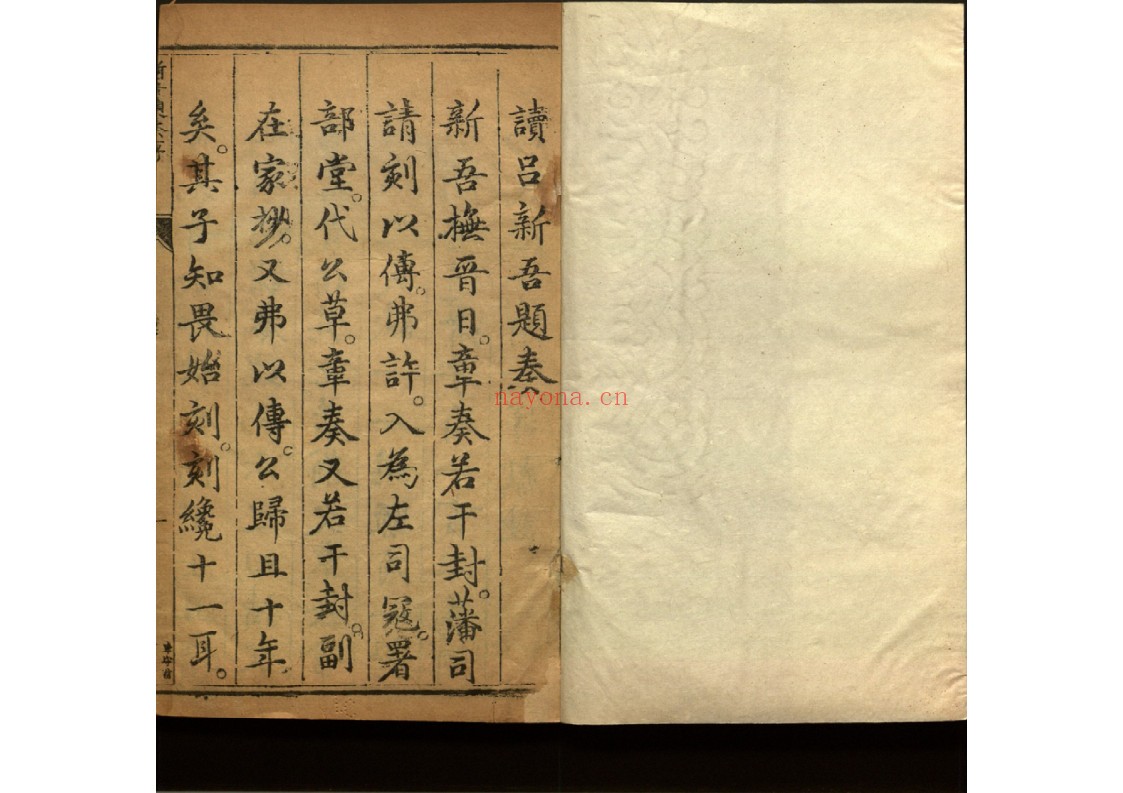 讀呂新吾題奏
新吾撫晋日。章奏若干封。藩司
請刻以傳。弗許。入為左司寇。署
部堂。代公草。章奏又若干封。副
在家抄。又弗以傳。公歸且十年
矣。其子知畏始刻。刻纔十一耳。
nayona.cn